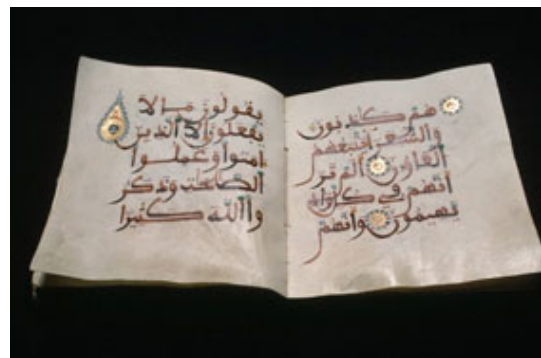 هم كذبون
والشعرا يتبعهم
الغاون ألم تر
أنهم في كل واد
يهيمون وأنهم
يقولون ما لا
يفعلون إلا الذين
امنوا وعملوا
الصلحت وذكر
وا الله كثيرا